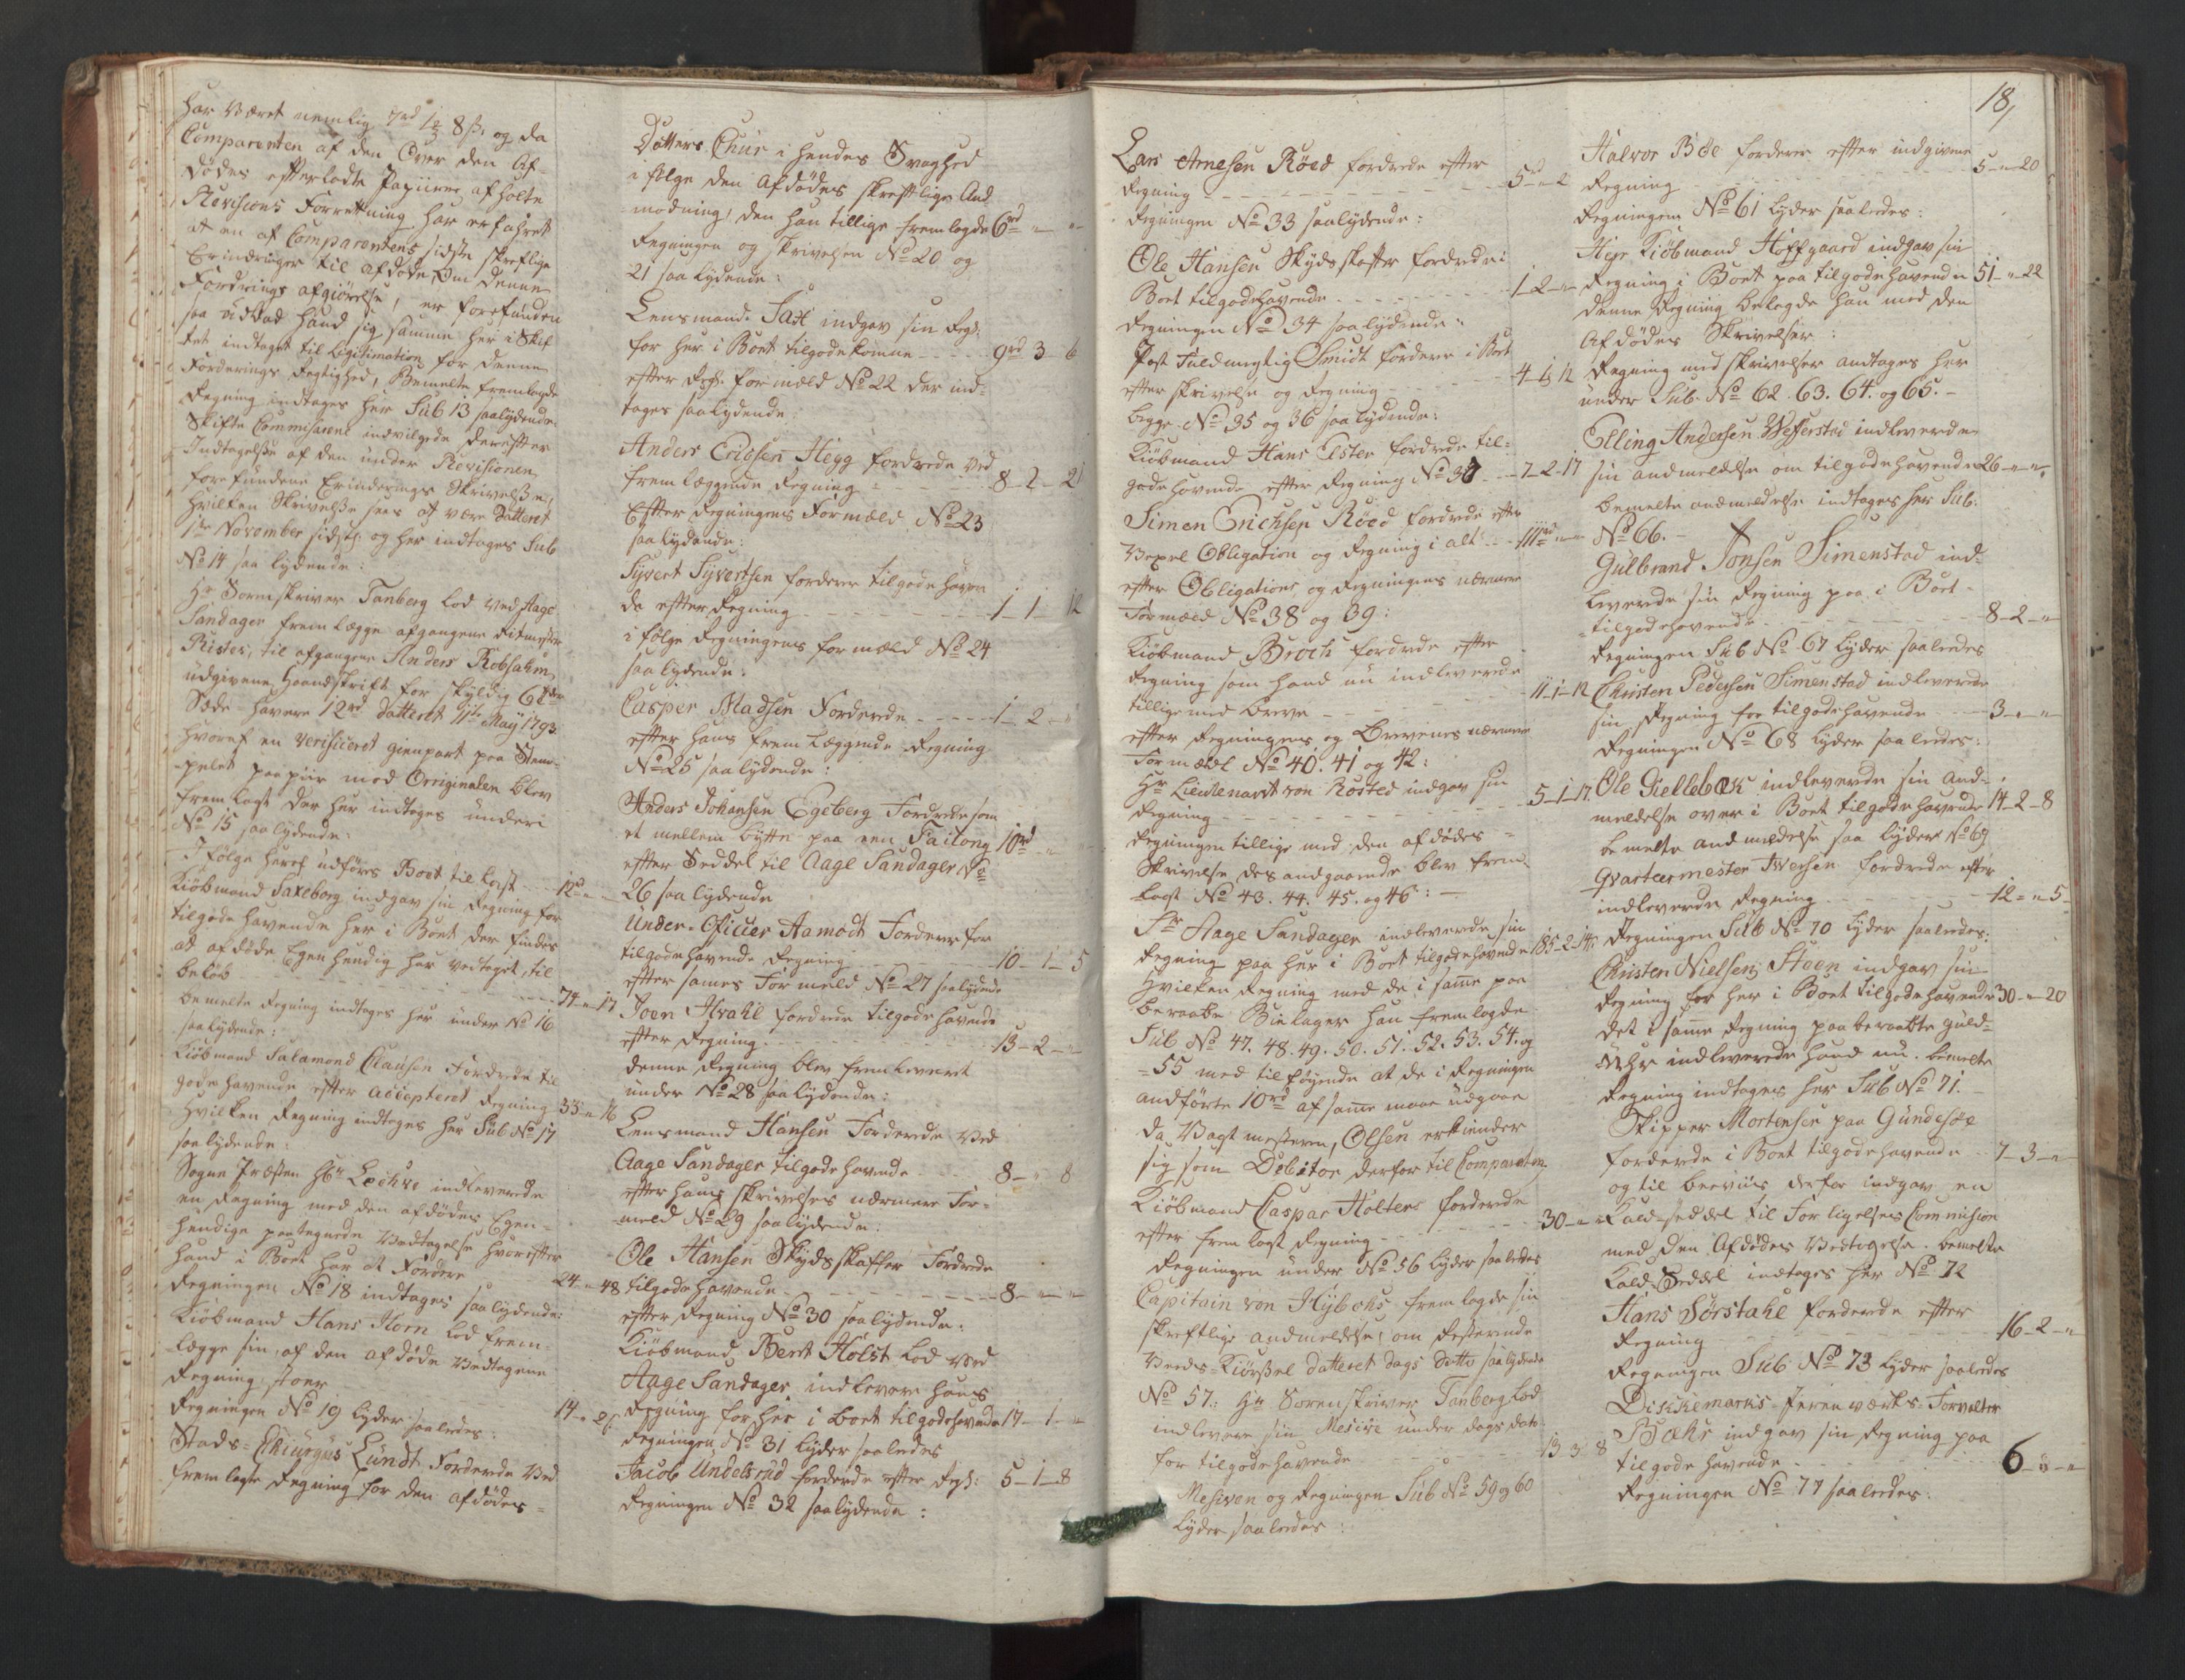 har været nemlig 7rd 1½ 8 s. og da
Comparenten af den Over den Af-
dødes efterladte Papiirer afholte
Revisions Forretning har erfahret
at en af Comparentens sidste skreftlige
Erindringer til afdøde, Om denne
Fordrings afgiørelse, er forefunden
saa udbad hand sig samme her i Skif
tet indtaget til Legitimation for denne
Forderings Rigtighed, Bemelte fremlagde
Regning indtages her Sub 13 saalydende
Skifte Commissairene indvilgede derefter
Indtagelsse af den under Revisionen
forefundene Erinderings Skrivelsse,
hvilken Skrivelsse sees at være Datteret
1te November sidstl: og her indtages Sub
No 14 saa lydende:
Hr Sorenskriver Tanberg lod ved Aage
Sandager fremlægge afgangene Ritmester
Rister, til afgangne Anders Robsahm
udgivene Haandskrift for skyldig 6 Tdr
Sæde havere 12rd datteret 11te May 1793.
hvoraf en verificeret gienpart paa Stem-
pelet papiir med Originalen blev
fremlagt der her indtages under
No 15 saalydende:
I følge heraf udføres Boet til last ---- 12rd " -
Kiöbmand Saxeborg indgav sin Regning for
tilgode havende her i Boet der findes
at afdøde Egenhendig har vedtaget, til
beløb ---- 74 - " 17
bemelte Regning indtages her under No 16
saalydende:
Kiöbmand Salamond Clausen Fordrede til
gode havende efter accepteret Regning 33 - " 16
hvilken Regning indtages her Sub No 17
saalydende:
Sogne Præsten Hr Leehve indleverede
en Regning med den afdødes Egen-
hendige paategnede Vedtagelse hvorefter
hand i Boet har at Fordere 24 - " 48
Regningen No 18 indtages saalydende:
Kiöbmand Hans Horn lod frem-
lægge sin, af den afdøde Vedtagene
Regning, stoer 14 - " 21
Regningen No 19 lyder saaledes:
Stads-Chiurgus Lundt Forderede Ved
fremlagte Regning for den afdødes =
Datters Chur i hendes Svaghed
i følge den Afdødes skreftlige And-
modning, den han tillige fremlagde 6rd " "
Regningen og skrivelsen No 20 og
21 saa lydende:
Lensmand Faxt indgav sin Regl:
for her i Boet tilgodekomne ---- 9rd 3 - 6
efter Regl: formæld No 22 der ind-
tages saalydende:
Anders Ericssen Hegg fordrede ved
fremlæggende Regning ---- 8 - 2 - 21
Efter Regningens Formæld No 23
saalydende:
Syvert Syvertsen forderer tilgodehaven
de efter Regning ---- 1 - 1 - 12
i følge Regningens formæld No 24
saalydende:
Casper Madsen Forderede ---- 1 - 2 - "
efter hans fremlæggende Regning
No 25 saalydende:
Anders Johansen Egeberg Fordrede som
et mellem bytte paa een Failong 10rd " "
efter Seddel til Aage Sandager, No
26 saalydende
Under-Oficier Aamodt Forderer for
tilgodehavende Regning ---- 10 - 1 - 5
efter sames Formeld No 27 saalydende
Joen Hvahl fordrede tilgode havende
efter Regning ---- 13 - 2 - "
denne Regning blev fremleveret
under No 28 saalydende:
Lensmand Hansen Forderede Ved
Aage Sandager tilgode havende 8 - " 8
efter hans skrivelses nærmere For-
meld No 29 saalydende:
Ole Hansen Skydsskaffer Fordrede
tilgode havende ---- 8 - " - "
efter Regning No 30 saalydende:
Kiöbmand Bernt Holst lod ved
Aage Sandager indlevere hans
Regning for her i boet tilgodehavende 17 - 1 - "
Regningen No 31 lyder saaledes
Jacob Undelsrud forderde efter Regl: 5 - 1 - 8
Regningen No 32 saalydende:
18,
Lars Arnesen Röed fordrede efter
Regning ---- 5rd " 2
Regningen No 33 saalydende:
Ole Hansen Skydsskaffer fordrede i
Boet tilgodehavende ---- 1 - 2 - "
Regningen No 34 saalydende:
Post Fuldmegtig Smidt fordrer i Boet
efter skrivelse og Regning ---- 4 - 1 12
begge No 35 og 36 saalydende:
Kiöbmand Hans Ester fordrede til-
gode havende efter Regning No 37 -- 7 - 2 - 17
Simen Erichsen Röed fordrede efter
Vexel Obligation og Regning i alt -- 111rd " "
efter Obligations og Regningens nærmere
Formæld No 38 og 39:
Kiöbmand Broch fordrede efter
Regning som hand nu indleverede
tillige med breve ---- 11 - 1 - 12
efter Regningens og brevenes nærmere
Formæld No 40. 41 og 42:
Hr Lieutenandt von Rosted indgav sin
Regning ---- 5 - 1 - 17
Regningen tillige med den afdødes =
Skrivelse des angaaende blev frem-
lagt No 43. 44. 45. og 46: -
Sr Aage Sandager indleverede sin
Regning paa her i Boet tilgodehavende 185 - 2 - 14
hvilken Regning med de i samme paa
beraabte Bielager han fremlagde
Sub No 47. 48. 49. 50. 51. 52. 53. 54. og
= 55 med tilføyende at de i Regningen
andførte 10rd af samme maae udgaae
da Vagtmesteren, Olsen erkiender
sig som Debitor derfor til Comparenten
Kiöbmand Caspar Holter forderede
efter fremlagt Regning ---- 30 - " "
Regningen under No 56 lyder saaledes
Capitain von Hyboks fremlagde sin
skreftlige andmeldelse, om Resterende
Veeds-Kiørsel datteret dags datto saalydende
No 57: Hr Sorenskriver Tanberg lod
indlevere sin Mesive under dags dato
for tilgodehavende ---- 13 3 8
Mesiven og Regningen Sub No 59 og 60
lyder saaledes:
Halvor Böe forderer efter indgivene
Regning ---- 5 - " - 20
Regningen No 61 lyder saaledes:
Herr Kiöbmand Hoffgaard indgav sin
Regning i Boet paa tilgodehavende 51 - " - 22
denne Regning belagde han med den
Afdødes Skrivelser:
Regning med skrivelser andtages her
under Sub No 62. 63. 64. og 65. -
Elling Andersen Wesserstad indleverede
sin andmeldelse om tilgodehavende 26 - " - "
bemelte andmeldelse indtages her Sub:
No 66. -
Gulbrand Jonsen Simenstad ind-
leverede sin Regning paa i Boet -
tilgodehavende ---- 8 - 2 - "
Regningen Sub No 67 lyder saaledes
Christen Pedersen Simenstad indleverede
sin Regning for tilgodehavende 3 - " - "
Regningen No 68 lyder saaledes:
Ole Giellebæk indleverede sin and-
meldelse over i Boet tilgodehavende 14 - 2 - 8
bemelte andmeldelse saa lyder No 69
Qvarteermester Iversen fordrede efter
indleverede Regning ---- 12 - " 5
Regningen Sub No 70 lyder saaledes:
Christen Nielsen Steen indgav sin
Regning for her i Boet tilgodehavende 30 - " 20
det i samme Regning paaberaabte guld-
Uhr indleverede hand nu. bemelte
Regning indtages her Sub No 71. -
Skipper Mortensen paa Gundesöe
forderede i Boet tilgodehavende - 7 - 3 - "
og til beeviis derfor indgav en
Kald-seddel til Forligelses Commision
med den Afdødes Vedtagelse. bemelte
Kald-Seddel indtages her No 72
Hans Sörstahl forderede efter
Regning ---- 16 - 2 - "
Regningen Sub No 73 lyder saaledes
Dikkemarks-Jernværks-Forvalter
Bæks indgav sin Regning paa
tilgode havende ---- 6 - " - "
Regningen No 77 saaledes.